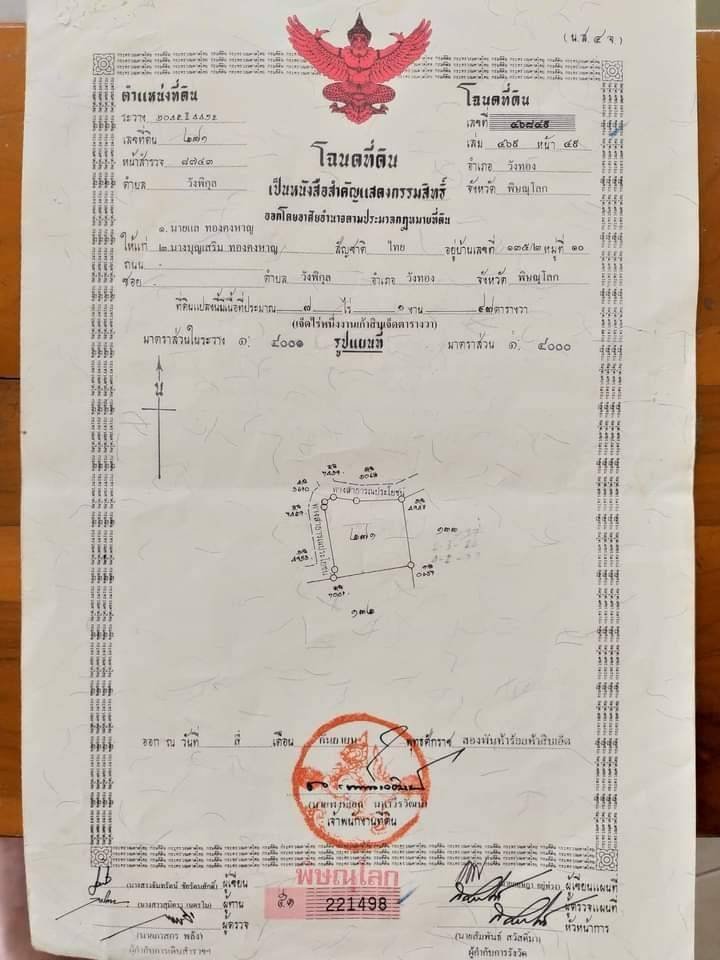 (น.ส.๔ จ)
ตำแหน่งที่ดิน
ระวาง
เลขที่ดิน ๒๗๑
หน้าสำรวจ ๘๗๔๓
ตำบล วังพิกุล
โฉนดที่ดิน
เลขที่ ๔๖๘๔๙
เล่ม ๔๖๙ หน้า ๔๙
อำเภอ วังทอง
จังหวัด พิษณุโลก
โฉนดที่ดิน
เป็นหนังสือสำคัญแสดงกรรมสิทธิ์
ออกโดยอาศัยอำนาจตามประมวลกฎหมายที่ดิน
๑. นายแล ทองคงหาญ
ให้แก่ ๒.นางบุญเสริม ทองคงหาญ สัญชาติ ไทย อยู่บ้านเลขที่ ๑๓๕/๒ หมู่ที่ ๑๐
ถนน -
ซอย - ตำบล วังพิกุล อำเภอ วังทอง จังหวัด พิษณุโลก
ที่ดินแปลงนี้มีเนื้อที่ประมาณ ๗ ไร่ ๑ งาน ๙๗ ตารางวา
(เจ็ดไร่หนึ่งงานเก้าสิบเจ็ดตารางวา)
มาตราส่วนในระวาง ๑: ๔๐๐๑ รูปแผนที่ มาตราส่วน ๑: ๔๐๐๐
น
ทางสาธารณประโยชน์
ทางสาธารณประโยชน์
๒๗๑
๑๓๓
๑๓๒
ออก ณ วันที่ สี่ เดือน กันยายน พุทธศักราช สองพันห้าร้อยห้าสิบเอ็ด
เจ้าพนักงานที่ดิน
พิษณุโลก
221498
ผู้เขียน
ผู้ทาน
ผู้ตรวจ
ผู้กำกับการเดินสำรวจฯ
ผู้เขียนแผนที่
ผู้ตรวจแผนที่
หัวหน้าการ
(นายสัมพันธ์ สวัสดิ์มา)
ผู้กำกับการรังวัด